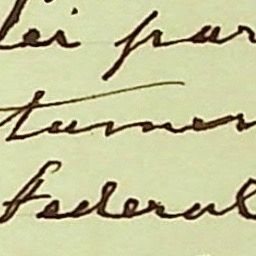 lei par
tumen
federal